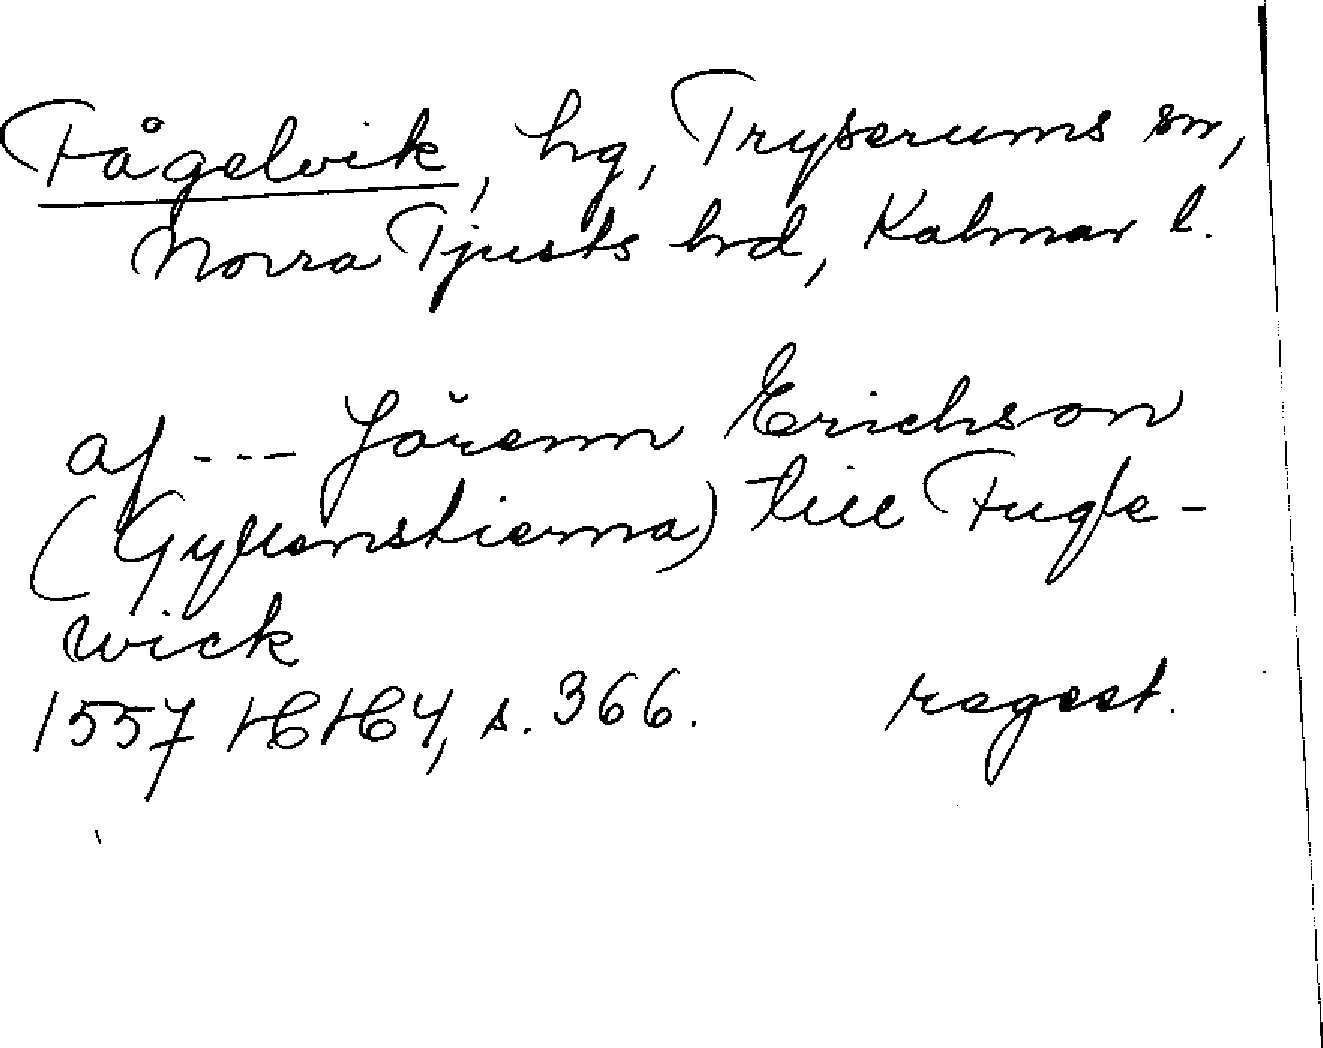 Fågelvik, hg, Tryserums sn,
Norra Tjusts hrd, Kalmar l.
af --- Jörenn Erichson
(Gyllenstierna) till Fugle-
wick
1557 HH4, s. 366. regest.